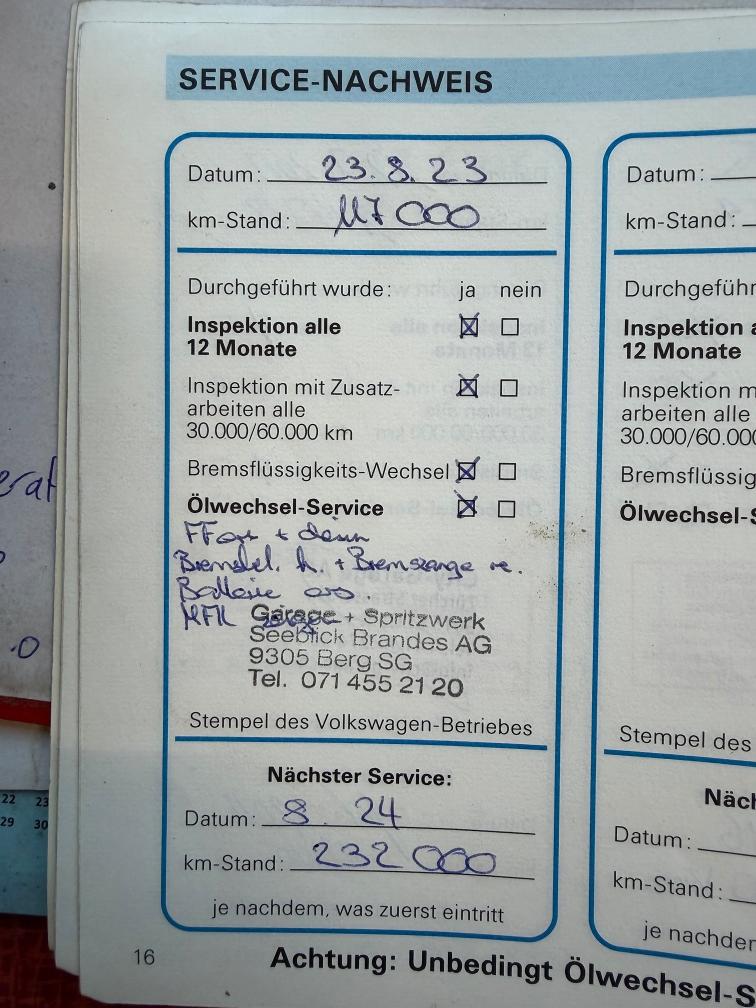 SERVICE-NACHWEIS
Datum: 23.8.23
km-Stand: 117 000
Durchgeführt wurde: ja nein
Inspektion alle
12 Monate
Inspektion mit Zusatz-
arbeiten alle
30.000/60.000 km
Bremsflüssigkeits-Wechsel
Ölwechsel-Service
+
Bremsbel. h. + Bremszange re.
Batterie
MFK
Garage + Spritzwerk
Seeblick Brandes AG
9305 Berg SG
Tel. 071 455 21 20
Stempel des Volkswagen-Betriebes
Nächster Service:
Datum: 8. 24
km-Stand: 232 000
je nachdem, was zuerst eintritt
16
Achtung: Unbedingt Ölwechsel-S
Datum:
km-Stand:
Durchgeführ
Inspektion a
12 Monate
Inspektion m
arbeiten alle
30.000/60.000
Bremsflüssig
Ölwechsel-S
Stempel des
Näch
Datum:
km-Stand:
je nachder
erat
.0
22 23
29 30